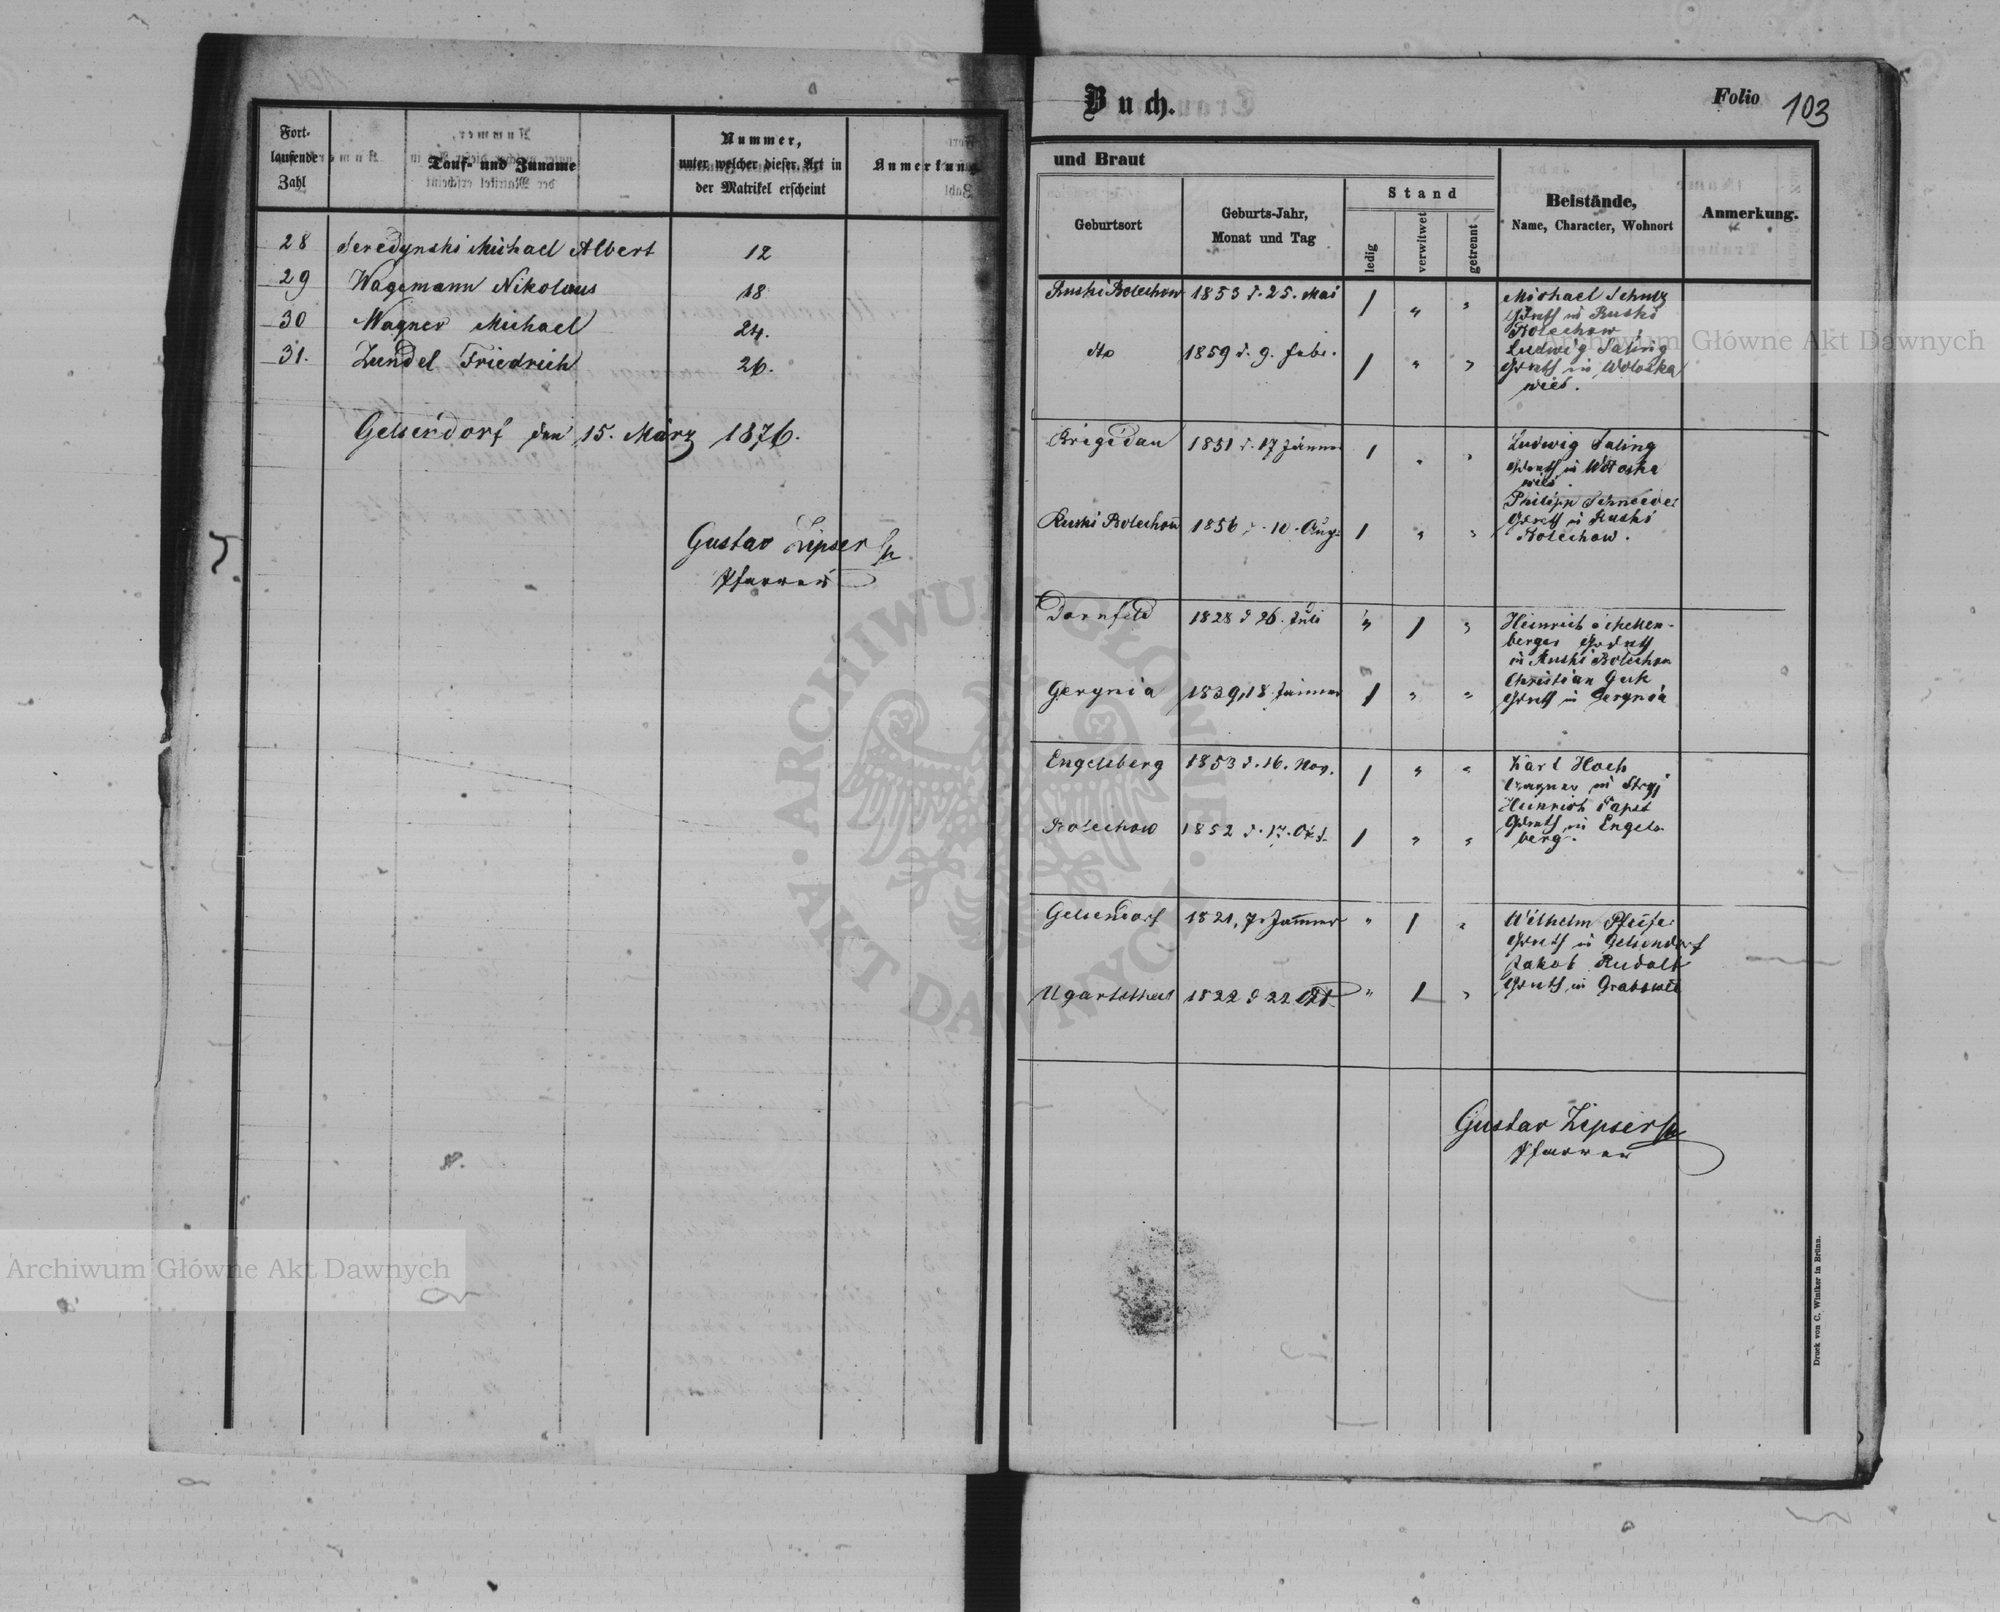 Fort-
laufende
Zahl
Tauf- und Zuname
Nummer,
unter welcher dieser Akt in
der Matrikel erscheint
Anmerkung
28 Seredynski Michael Albert 12
29 Wagemann Nikolaus 18
30 Wagner Michael 24.
31. Zundel Friedrich 26.
Gelsendorf den 15. März 1876.
Gustav Zipser
Pfarrer
Buch.
Folio 103
und Braut
Geburtsort
Geburts-Jahr,
Monat und Tag
Stand
ledig
verwitwet
getrennt
Beistände,
Name, Character, Wohnort
Anmerkung.
Ruski Bolechow 1853 d. 25. Mai / " "
Michael Schulz
in Ruski
Bolechow
dto 1859 d. 9. Febr. / " "
Ludwig Saling
in Woloska
wies.
Brigidau 1851 d. 17 Jänner / " "
Ludwig Saling
in Woloska
wies.
Ruski Bolechow 1856 d. 10. Aug. / " "
Philipp Schneider
in Ruski
Bolechow.
Dornfeld 1828 d 26. Juli " / "
Heinrich Schellen-
berger
in Ruski Bolechow
Gerynia 1839, 18. Jänner / " "
Christian Guk
in Gerynia
Engelsberg 1853 d. 16. Nov. / " "
Karl Hoch
Wagner in Stryj
Bolechow 1852 d. 17. Okt. / " "
Heinrich Papst
in Engels-
berg.
Gelsendorf 1821, 7. Jänner " / "
Wilhelm Pfeifer
in Gelsendorf
Ugartsthal 1822 d 22 Okt. " / "
Jakob Rudolf
in Grabowce
Gustav Zipser
Pfarrer
Druck von C. Winiker in Brünn.
Archiwum Główne Akt Dawnych
Archiwum Główne Akt Dawnych
ARCHIWUM GŁÓWNE · AKT DAWNYCH ·